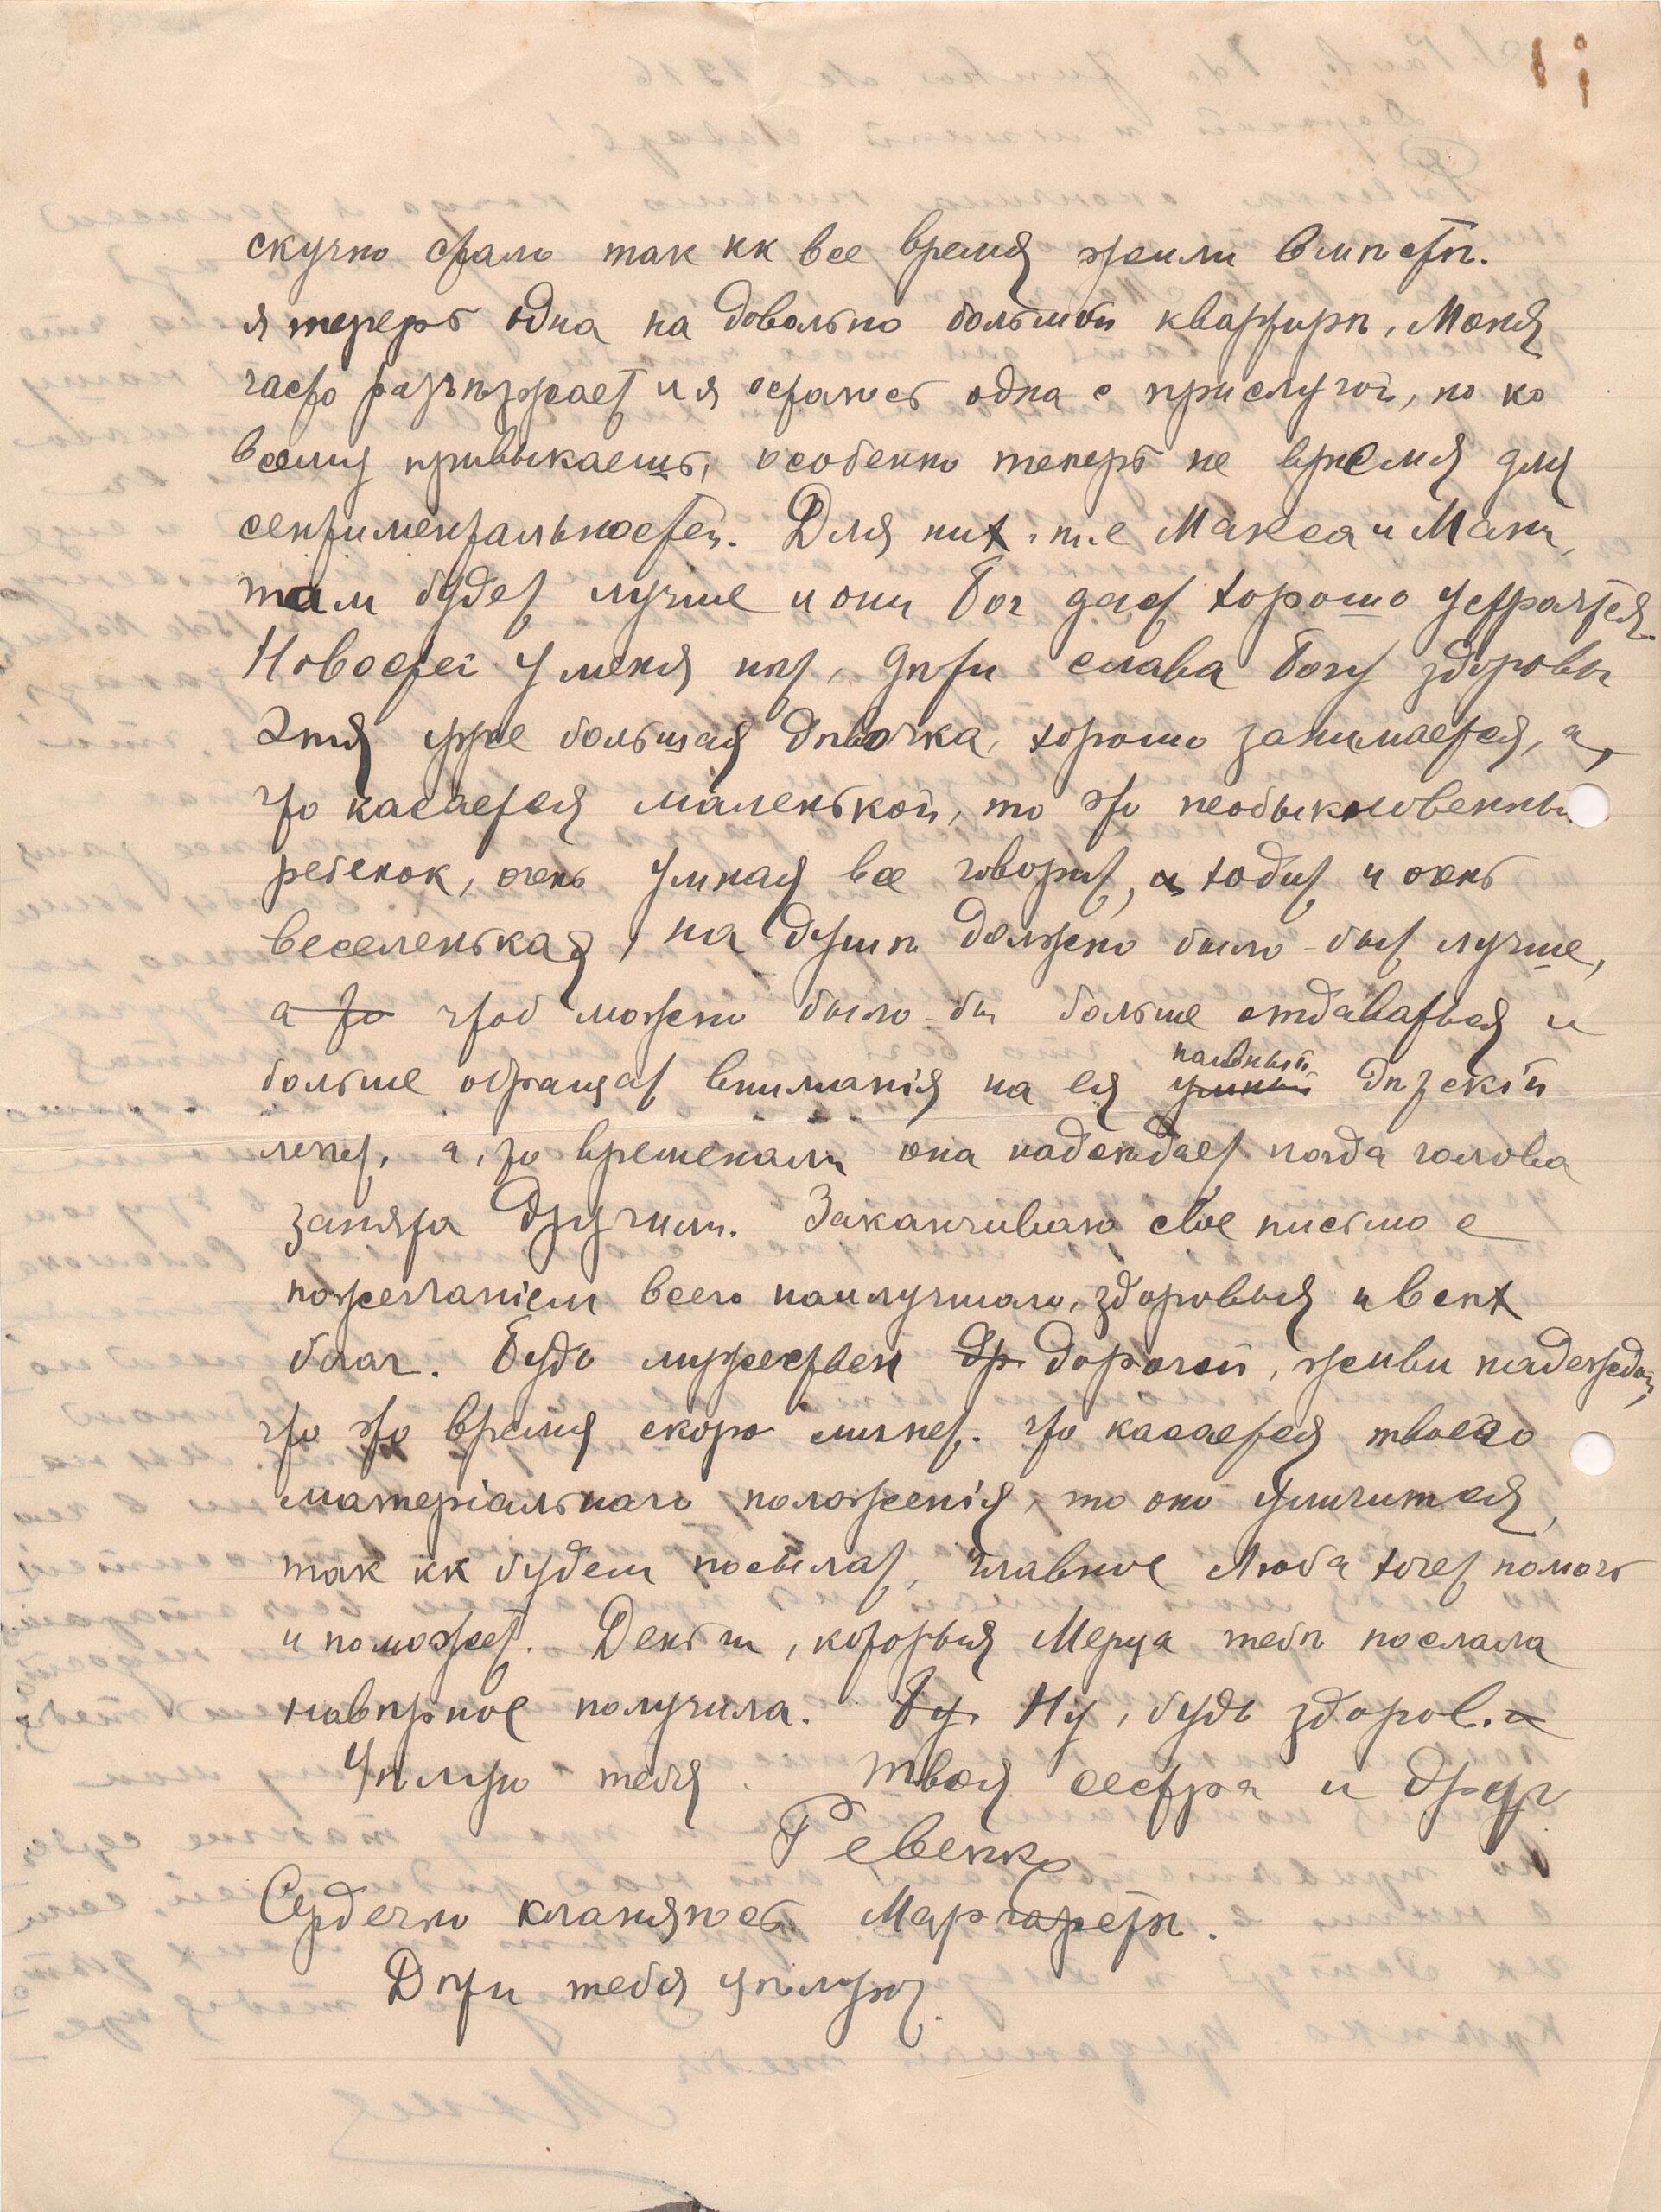 скучно стало так кк все время жили вмѣстѣ.
я теперь одна на довольно большой квартирѣ, Моня
часто разъѣзжает и я остаюсь одна с прислугой, но ко
всему привыкаешь, особенно теперь не время для
сентиментальностей. Для них, т.е Макса и Мани,
там будет лучше и они Бог даст хорошо устроятся.
Новостей у меня нѣт, дѣти слава Богу здоровы
Этя уже большая дѣвочка, хорошо занимается, а,
что касается маленькой, то это необыкновенный
ребенок, очень умная все говорит, ходит и очень
веселенькая, на душѣ должно было-быть лучше,
а то чтоб можно было-бы больше отдаваться и
больше обращать вниманія на ея наивный умный дѣтскій
лепет, а, то временами она надоѣдает когда голова
занята другим. Заканчиваю свое письмо с
пожеланіем всего наилучшаго, здоровья и всѣх
благ. Будь мужествен др дорогой, живи надеждой,
что это время скоро минет. Что касается твоего
матеріальнаго положенія, то оно улучшится,
так кк будем посылать, главное Люба хочет помочь
и поможет. Деньги, которыя Мерца тебѣ послала
навѣрное получила. Бу Ну, будь здоров. и
Цѣлую тебя. Твоя сестра и друг
Ревекка
Сердечно кланяюсь Маргаретѣ.
Дѣти тебя цѣлуют.